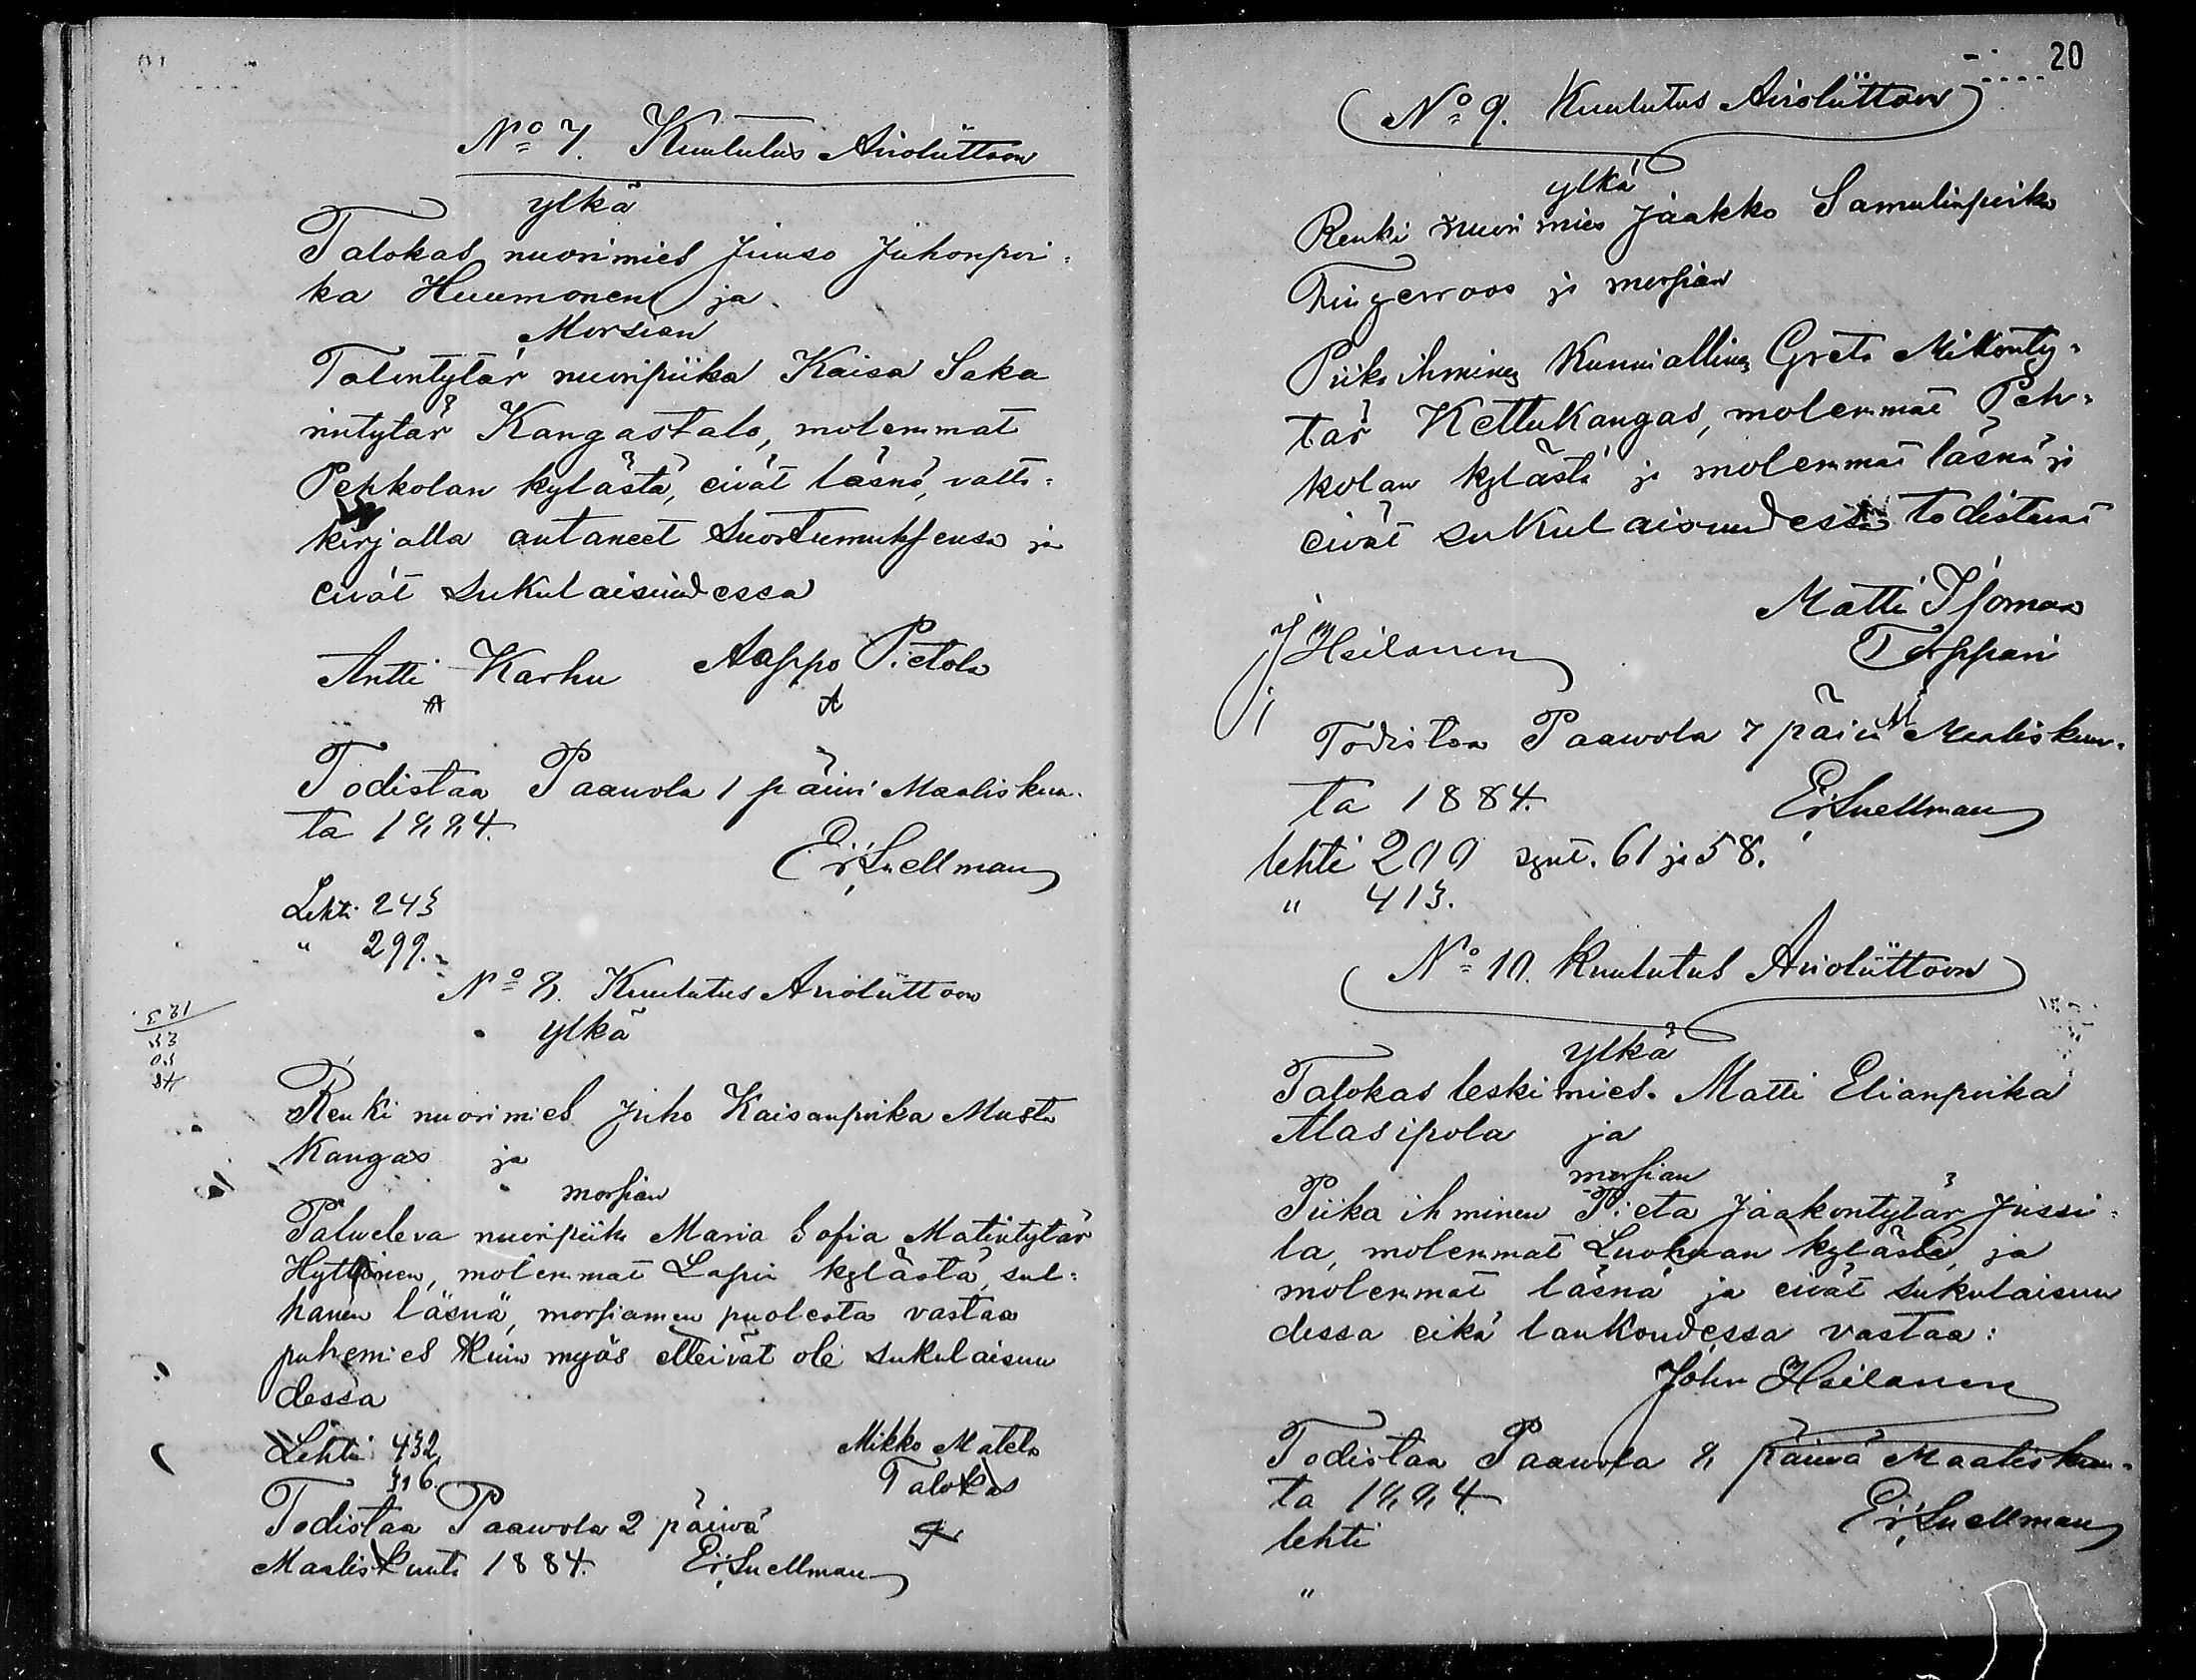 No 7. Kuulutus Avioliittoon
ylkä
Talokas nuorimies Juuso Juhonpoi=
ka Huumonen ja
Morsian
Talontytär nuoripiika Kaisa Saka
rintytär Kangastalo, molemmat
Pehkolan kylästä, eivät läsnä, valta=
kirjalla antaneet suostumuksensa ja
eivät sukulaisuudessa
Antti Karhu Aappo Pietola
Todistaa Paavola 1 päivä Maaliskuu=
ta 1884.
E. Snellman
Lehti 243
" 299.
No 8. Kuulutus Avioliittoon
ylkä
Renki nuorimies Juho Kaisanpoika Musta
Kangas ja
morsian
Palveleva nuoripiika Maria Sofia Matintytär
Hyttinen, molemmat Lapin kylästä, sul=
hanen läsnä, morsiamen puolesta vastaa
puhemies kuin myös etteivät ole sukulaisuu
dessa
Lehti 432
316.
Mikko Matela
Talokas
Todistaa Paawola 2 päivä
Maaliskuuta 1884. E. Snellman
20
No 9. Kuulutus Avioliittoon
ylkä
Renki nuorimies Jaakko Samulinpoika
Fingerroos ja morsian
Piika ihminen Kunniallinen Greta Mikonty=
tär Kettukangas, molemmat Peh=
kolan kylästä ja molemmat läsnä ja
eivät sukulaisuudessa todistavat
Matti
J Heilanen Torppari
Todistaa Paawola 7 päivä Maaliskuu=
ta 1884. E. Snellman
lehti 200 synt. 61 ja 58.
" 413.
No 10. Kuulutus Avioliittoon
ylkä
Talokas leskimies. Matti Elianpoika
Alasipola ja
morsian
Piika ihminen Pieta Jaakontytär Jussi=
la, molemmat Luohuan kylästä, ja
molemmat läsnä ja eivät sukulaisuu
dessa eikä lankoudessa vastaa:
John Heilanen
Todistaa Paawola 8 päivä Maaliskuu=
ta 1884.
E. Snellman
lehti
"